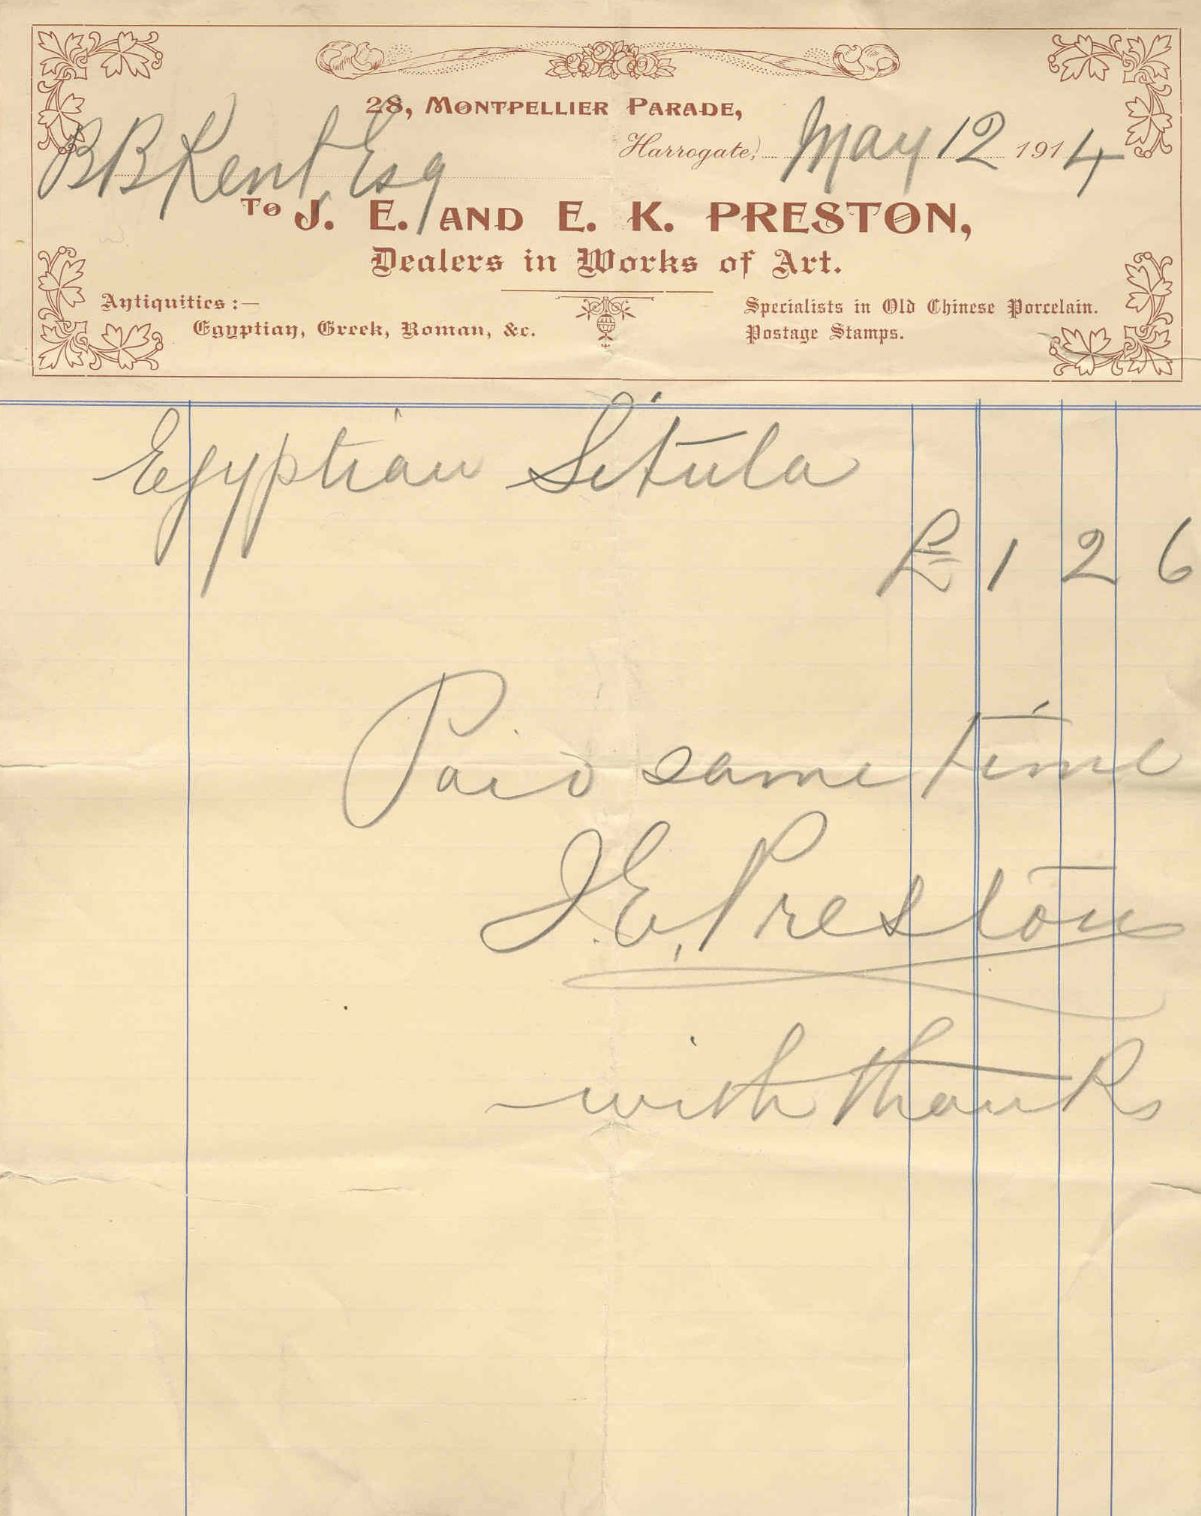 28, Montpellier Parade,
Harrogate, May 12 1914
B B Kent, Esq
To J. E. AND E. K. PRESTON,
Dealers in Works of Art.
Antiquities:—
Egyptian, Greek, Roman, &c.
Specialists in Old Chinese Porcelain.
Postage Stamps.
Egyptian Situla
£ 1 2 6
Paid same time
J. E. Preston
with thanks